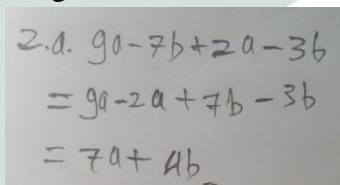 2.a. 9a-7b+2a-3b
= 9a-2a+7b-3b
= 7a+4b